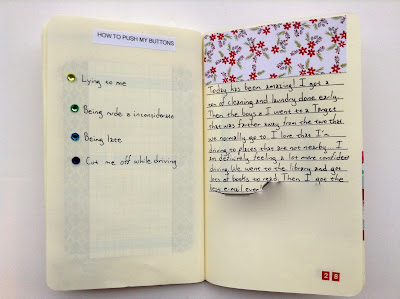 HOW TO PUSH MY BUTTONS
Lying to me
Being rude & inconsiderate
Being late
Cut me off while driving
Today has been amazing! I got a
ton of cleaning and laundry done early.
Then the boys & I went to a Target
that was farther away from the two that
we normally go to. I love that I'm
driving to places that are not nearby. I
am definitely feeling a lot more confident
driving. We went to the library and got
lots of books to read. Then I got the
best e-mail ever!
28